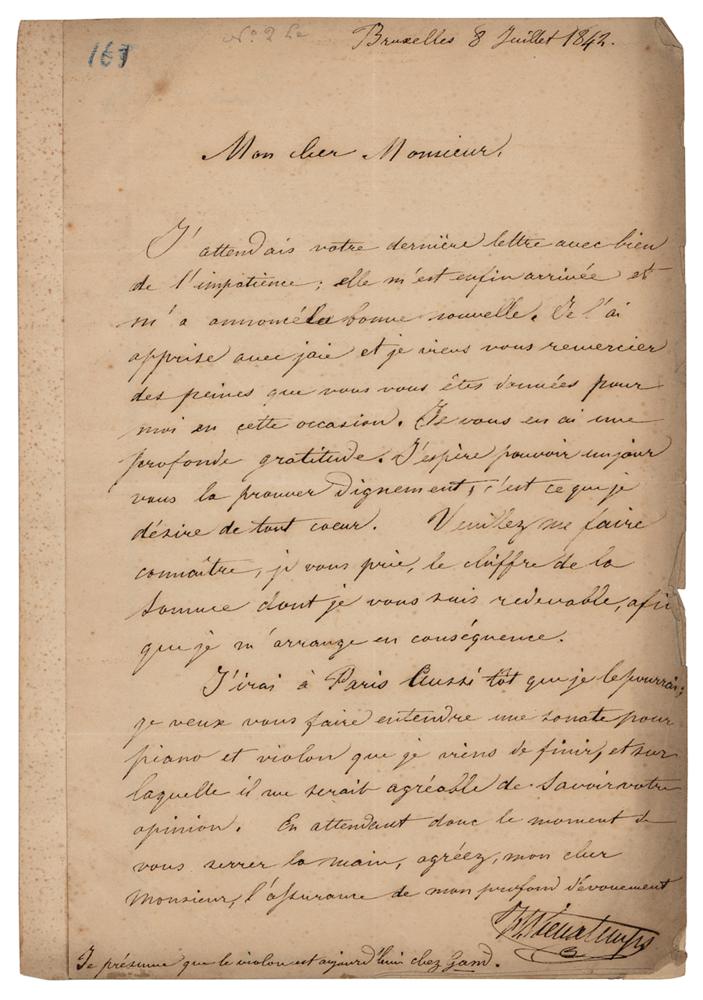 161
Bruxelles 8 Juillet 1842.
Mon cher Monsieur,
J'attendais votre dernière lettre avec bien
de l'impatience; elle m'est enfin arrivée et
m'a annoncé la bonne nouvelle. Je l'ai
apprise avec joie et je viens vous remercier
des peines que vous vous êtes données pour
moi en cette occasion. Je vous en ai une
profonde gratitude. J'espère pouvoir un jour
vous la prouver dignement, c'est ce que je
désire de tout coeur. Veuillez me faire
connaître, je vous prie, le chiffre de la
somme dont je vous suis redevable, afin
que je m'arrange en conséquence.
J'irai à Paris aussi tôt que je le pourrai;
je veux vous faire entendre une sonate pour
piano et violon que je viens de finir, et sur
laquelle il me serait agréable de savoir votre
opinion. En attendant donc le moment de
vous serrer la main, agréez, mon cher
Monsieur, l'assurance de mon profond dévouement
H. Vieuxtemps
Je présume que le violon est aujourd'hui chez Gand.